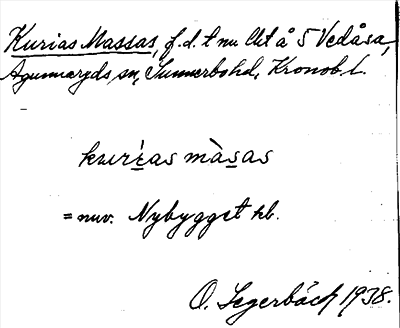 Kurias Massas, f.d. t nu llt å 5 Vedåsa,
Agunnaryds sn, Sunnerbohd, Kronob. l.
kurias màsas
= nuv. Nybygget hb.
O. Segerbäck 1938.